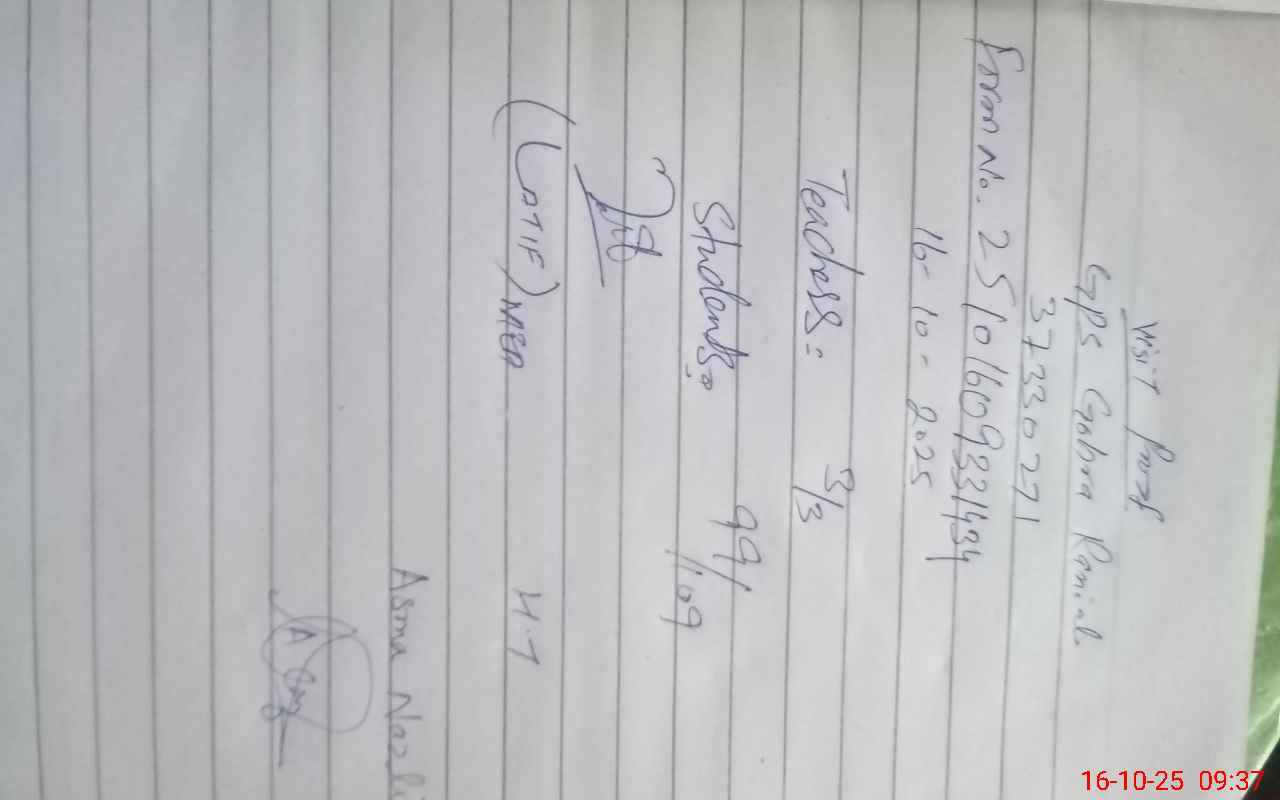 Visit Proof
GPS Gohra Ranial
37330271
Form No. 25101609331434
16-10-2025
Teachers: 3/3
Students: 99/109
(LATIF) MEA H.T
Asma Nazli
16-10-25 09:37